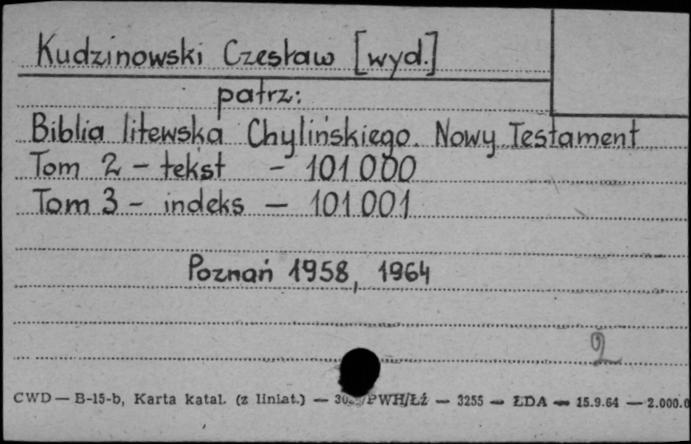 Kudzinowski Czesław [wyd.]
patrz:
Biblia litewska Chylińskiego. Nowy Testament
Tom 2 – tekst – 101000
Tom 3 – indeks – 101001
Poznań 1958, 1964
2
CWD — B-15-b, Karta katal. (z liniat.) — PWH/Łź — 3255 — ŁDA — 15.9.64 — 2.000.0